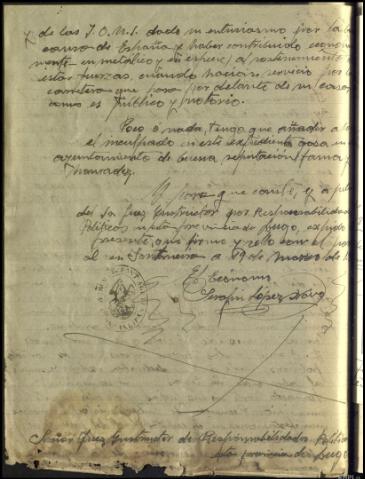 y de las J.O.N.S. dado su entusiasmo por la
causa de España y haber contribuido
en metálico y en especie, al sostenimiento
estas fuerzas, cuando hacian servicio por la
carretera que pasa por delante de su casa,
como es público y notorio.
Poco o nada, tengo que añadir a
el inculpado en este expediente goza en
ayuntamiento de buena reputacion, fama y
honradez.
Y para que conste, y a
del Sr. Juez Instructor por Responsabilidades
Políticas en esta provincia de Lugo, expido
presente, que firmo y sello con el
en a 19 de Marzo de
El Ecónomo
Serafín López
Señor Juez Instructor de Responsabilidades
esta provincia de Lugo